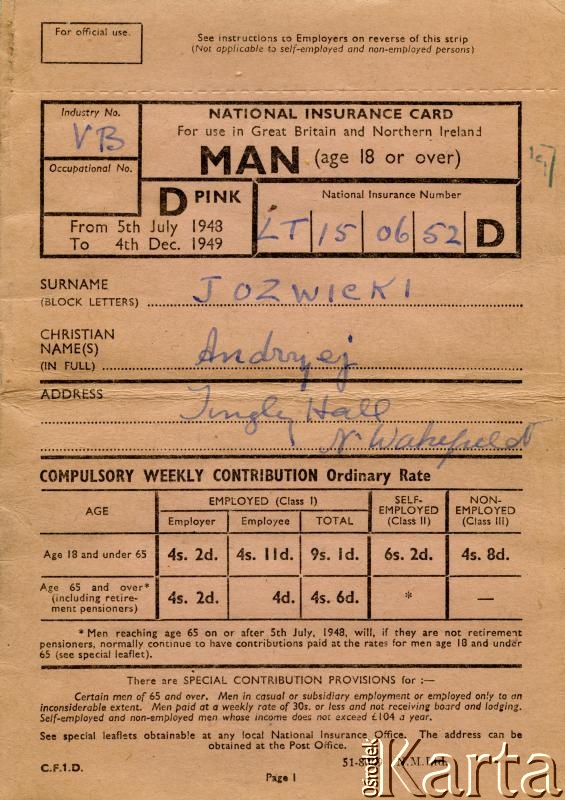 For official use.
See instructions to Employers on reverse of this strip
(Not applicable to self-employed and non-employed persons)
Industry No.
VB
Occupational No.
NATIONAL INSURANCE CARD
For use in Great Britain and Northern Ireland
MAN (age 18 or over)
D PINK
From 5th July 1948
To 4th Dec. 1949
National Insurance Number
LT 15 06 52 D
SURNAME
(BLOCK LETTERS) JOZWICKI
CHRISTIAN
NAME(S)
(IN FULL) Andrzej
ADDRESS Tingley Hall
Nr Wakefield
COMPULSORY WEEKLY CONTRIBUTION Ordinary Rate
AGE
EMPLOYED (Class I)
Employer Employee TOTAL
SELF-EMPLOYED (Class II)
NON-EMPLOYED (Class III)
Age 18 and under 65 4s. 2d. 4s. 11d. 9s. 1d. 6s. 2d. 4s. 8d.
Age 65 and over*
(including retire-
ment pensioners) 4s. 2d. 4d. 4s. 6d. * —
* Men reaching age 65 on or after 5th July, 1948, will, if they are not retirement
pensioners, normally continue to have contributions paid at the rates for men age 18 and under
65 (see special leaflet).
There are SPECIAL CONTRIBUTION PROVISIONS for :—
Certain men of 65 and over. Men in casual or subsidiary employment or employed only to an
inconsiderable extent. Men paid at a weekly rate of 30s. or less and not receiving board and lodging.
Self-employed and non-employed men whose income does not exceed £104 a year.
See special leaflets obtainable at any local National Insurance Office. The address can be
obtained at the Post Office.
C.F.1.D.
N.M.Ltd.
Page 1
Ośrodek
Karta